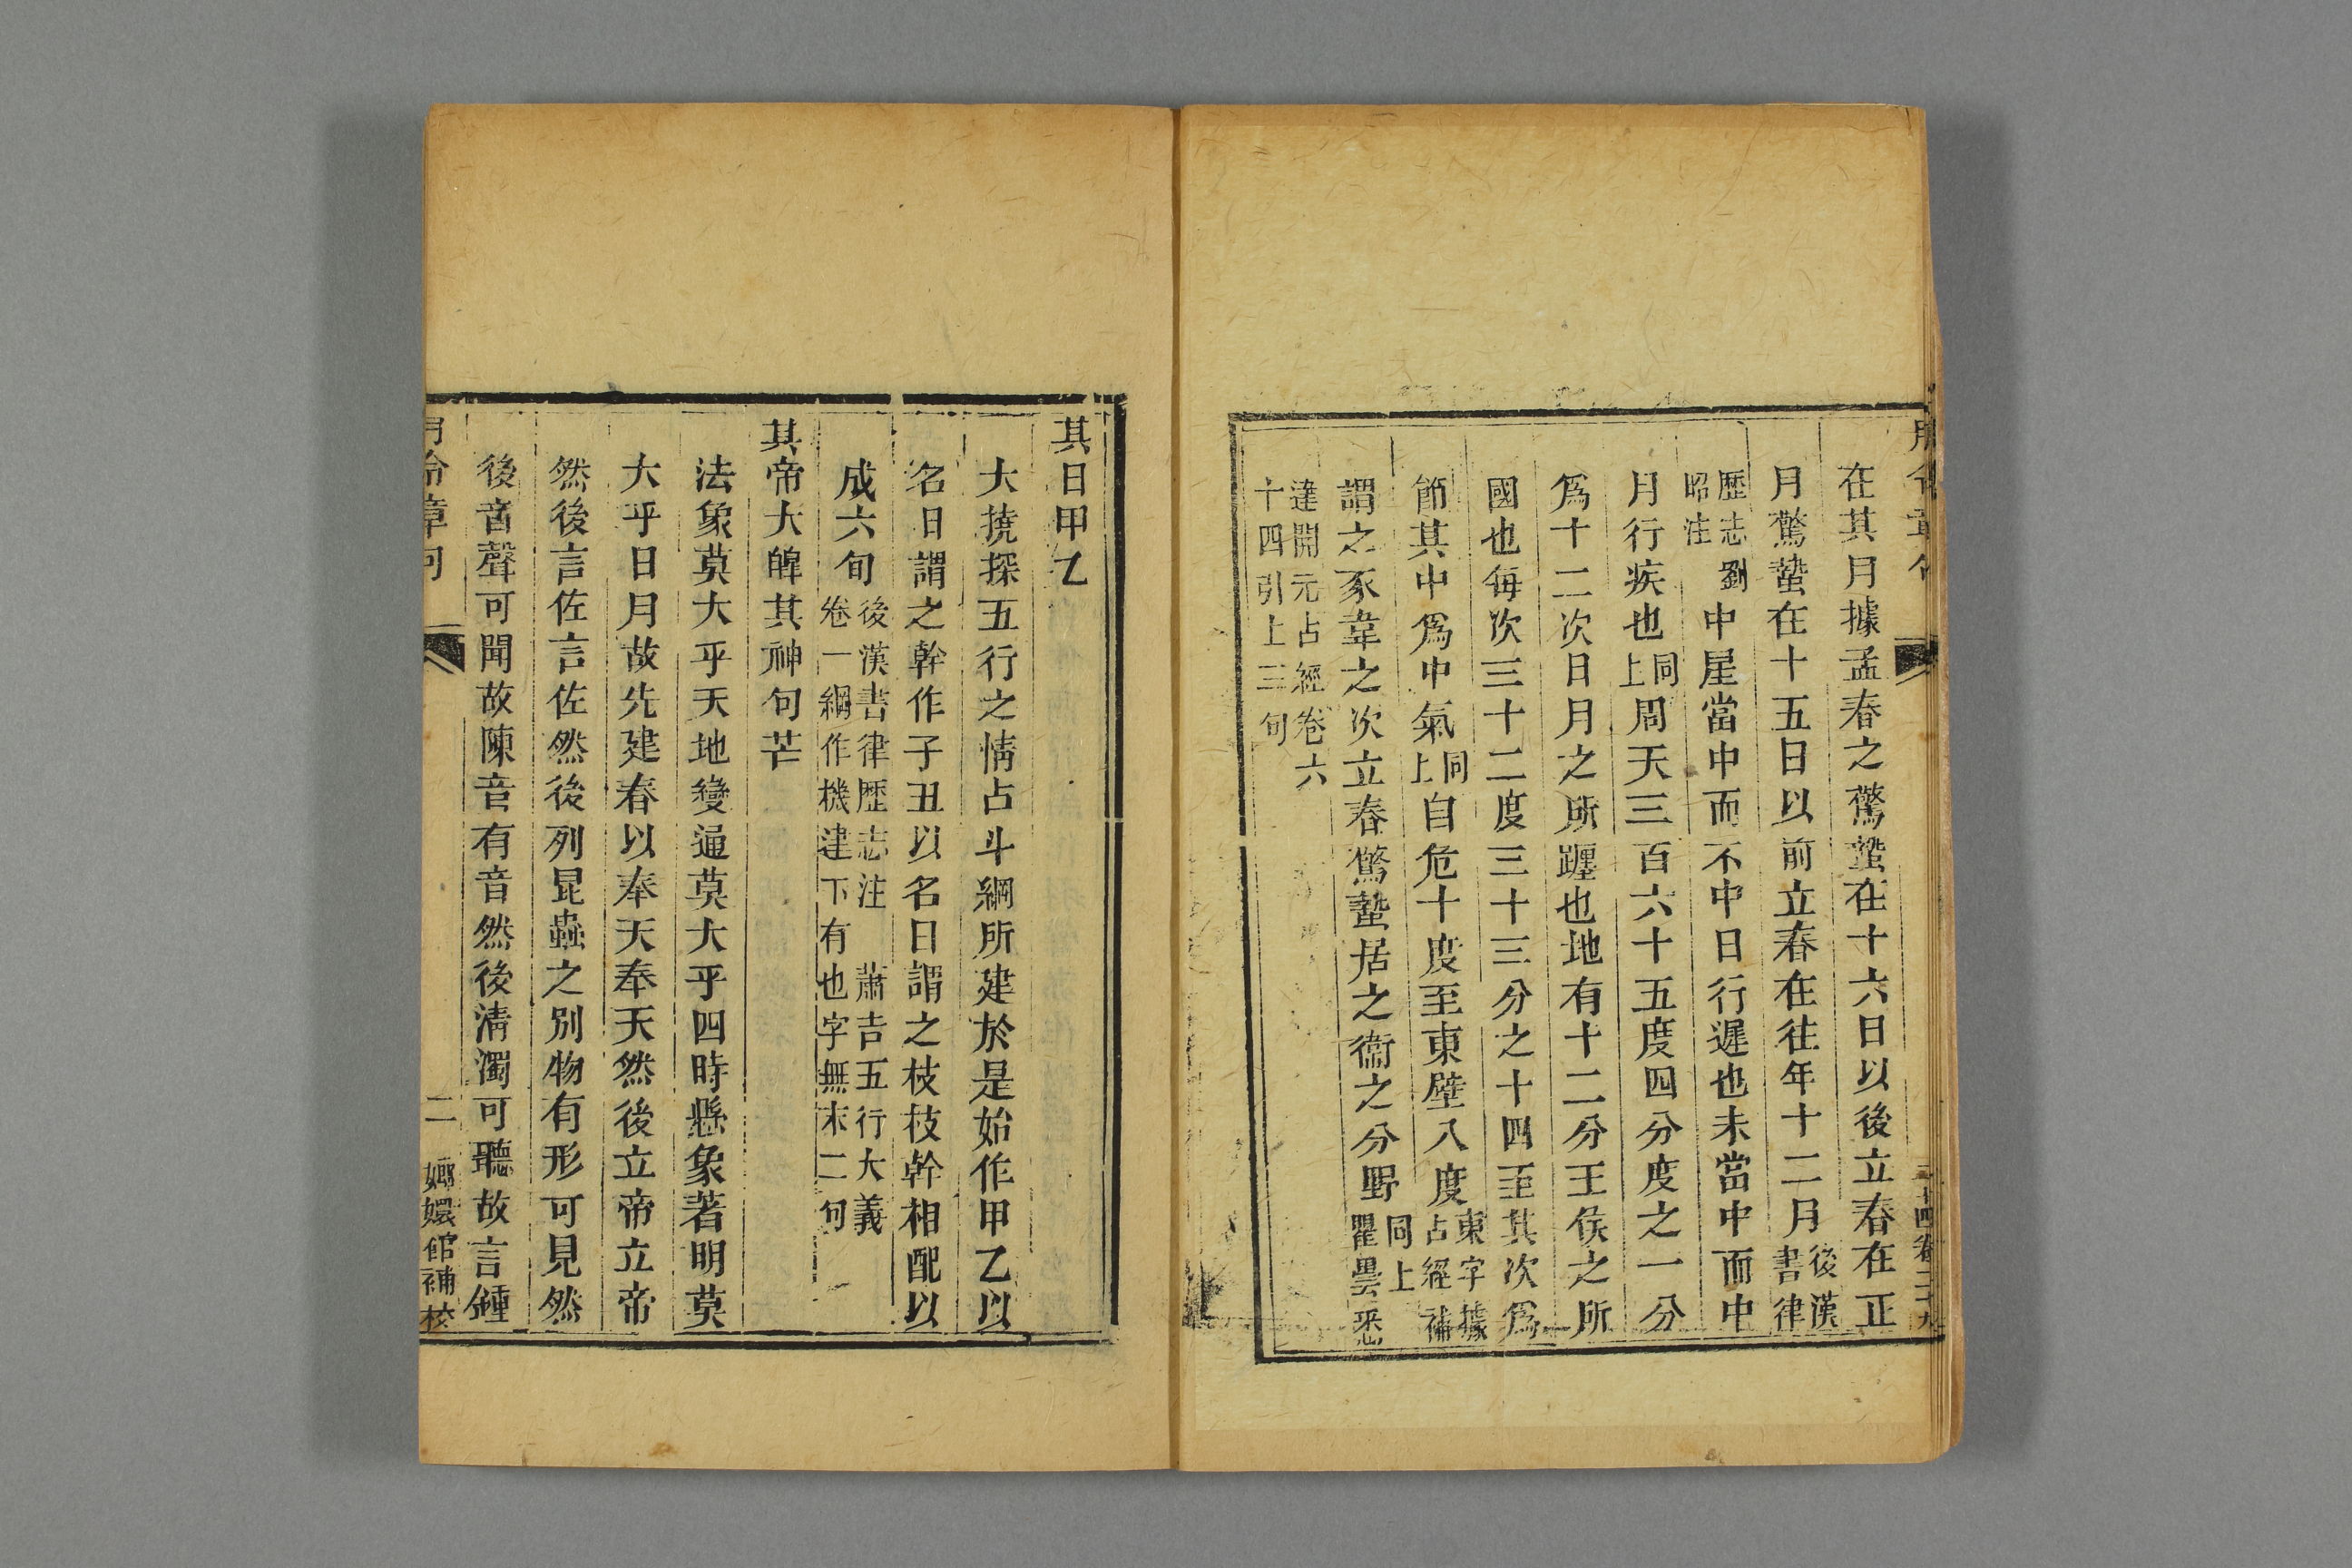 在其月據孟春之驚蟄在十六日以後立春在正
月驚蟄在十五日以前立春在往年十二月後漢書律
歷志劉昭注中星當中而不中日行遲也未當中而中
月行疾也同上周天三百六十五度四分度之一分
爲十二次日月之所躔也地有十二分王侯之所
國也每次三十二度三十三分之十四至其次爲
節其中爲中氣同上自危十度至東壁八度東字據占經補
謂之豕韋之次立春驚蟄居之衞之分野同上瞿曇悉
達開元占經卷六十四引上三句
其日甲乙
大撓探五行之情占斗綱所建於是始作甲乙以
名日謂之幹作子丑以名日謂之枝枝幹相配以
成六旬後漢書律歷志注 蕭吉五行大義卷一綱作機建下有也字無末二句
其帝大皥其神句芒
法象莫大乎天地變通莫大乎四時懸象著明莫
大乎日月故先建春以奉天奉天然後立帝立帝
然後言佐言佐然後列昆蟲之別物有形可見然
後音聲可聞故陳音有音然後清濁可聽故言鍾
月令章句 二 嫏嬛館補校